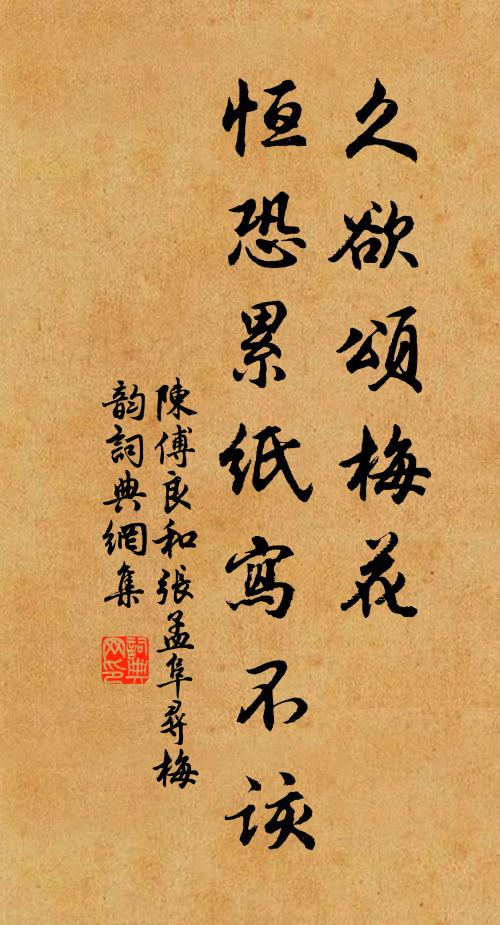 久欲頌梅花
恒恐累紙寫不該
陳傅良和張孟阜尋梅
韵詞典網集
詞典網印